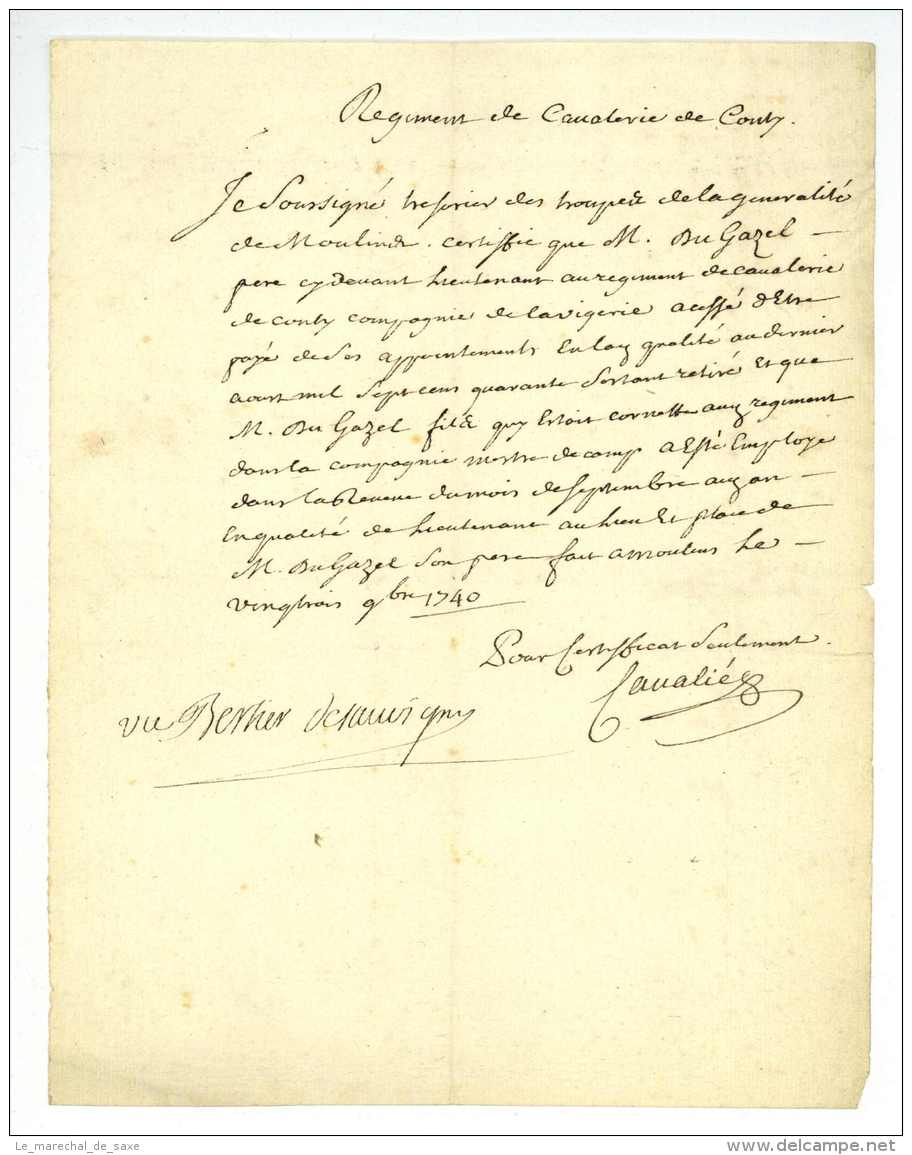 Regiment de Cavalerie de Conty.
Je Soussigné tresorier des troupes de la generalité
de Moulins. certiffie que M. Du Gazel —
pere cydevant Lieutenant au regiment de cavalerie
de conty compagnie de lavigerie a cessé d'Etre
payé de Ses appointements En lad qualité au dernier
aoust mil Sept cens quarante Sestant retiré Et que
M. Du Gazel fils quy Estoit cornette aud regiment
dans la compagnie mestre de camp a Esté Employé
dans la Reveue du mois de septembre aud an —
En qualité de Lieutenant au lieu Et place de
M. Du Gazel Son pere fait a moulins Le —
vingtrois 9bre 1740
Pour Certifficat Seulement.
Cavalié
vu Bertier de Sauvigny
Le_marechal_de_saxe
www.delcampe.net